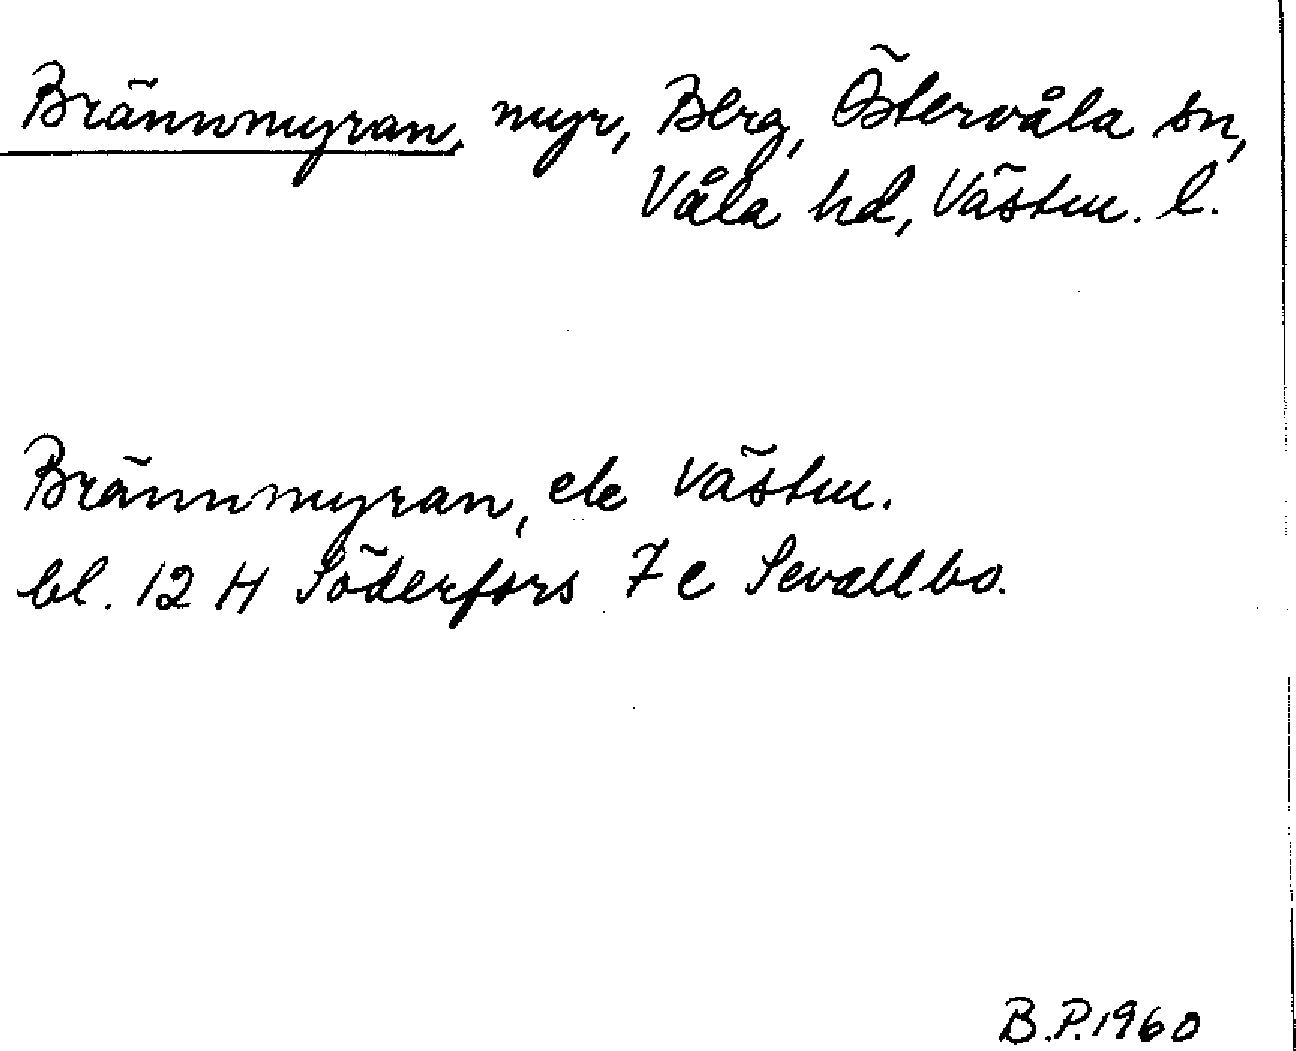 Brännmyran, myr, Berg, Östervåla sn,
Våla hd, Västm. l.
Brännmyran, ek Västm.
bl. 12 H Söderfors 7 c Sevallbo.
B.P. 1960